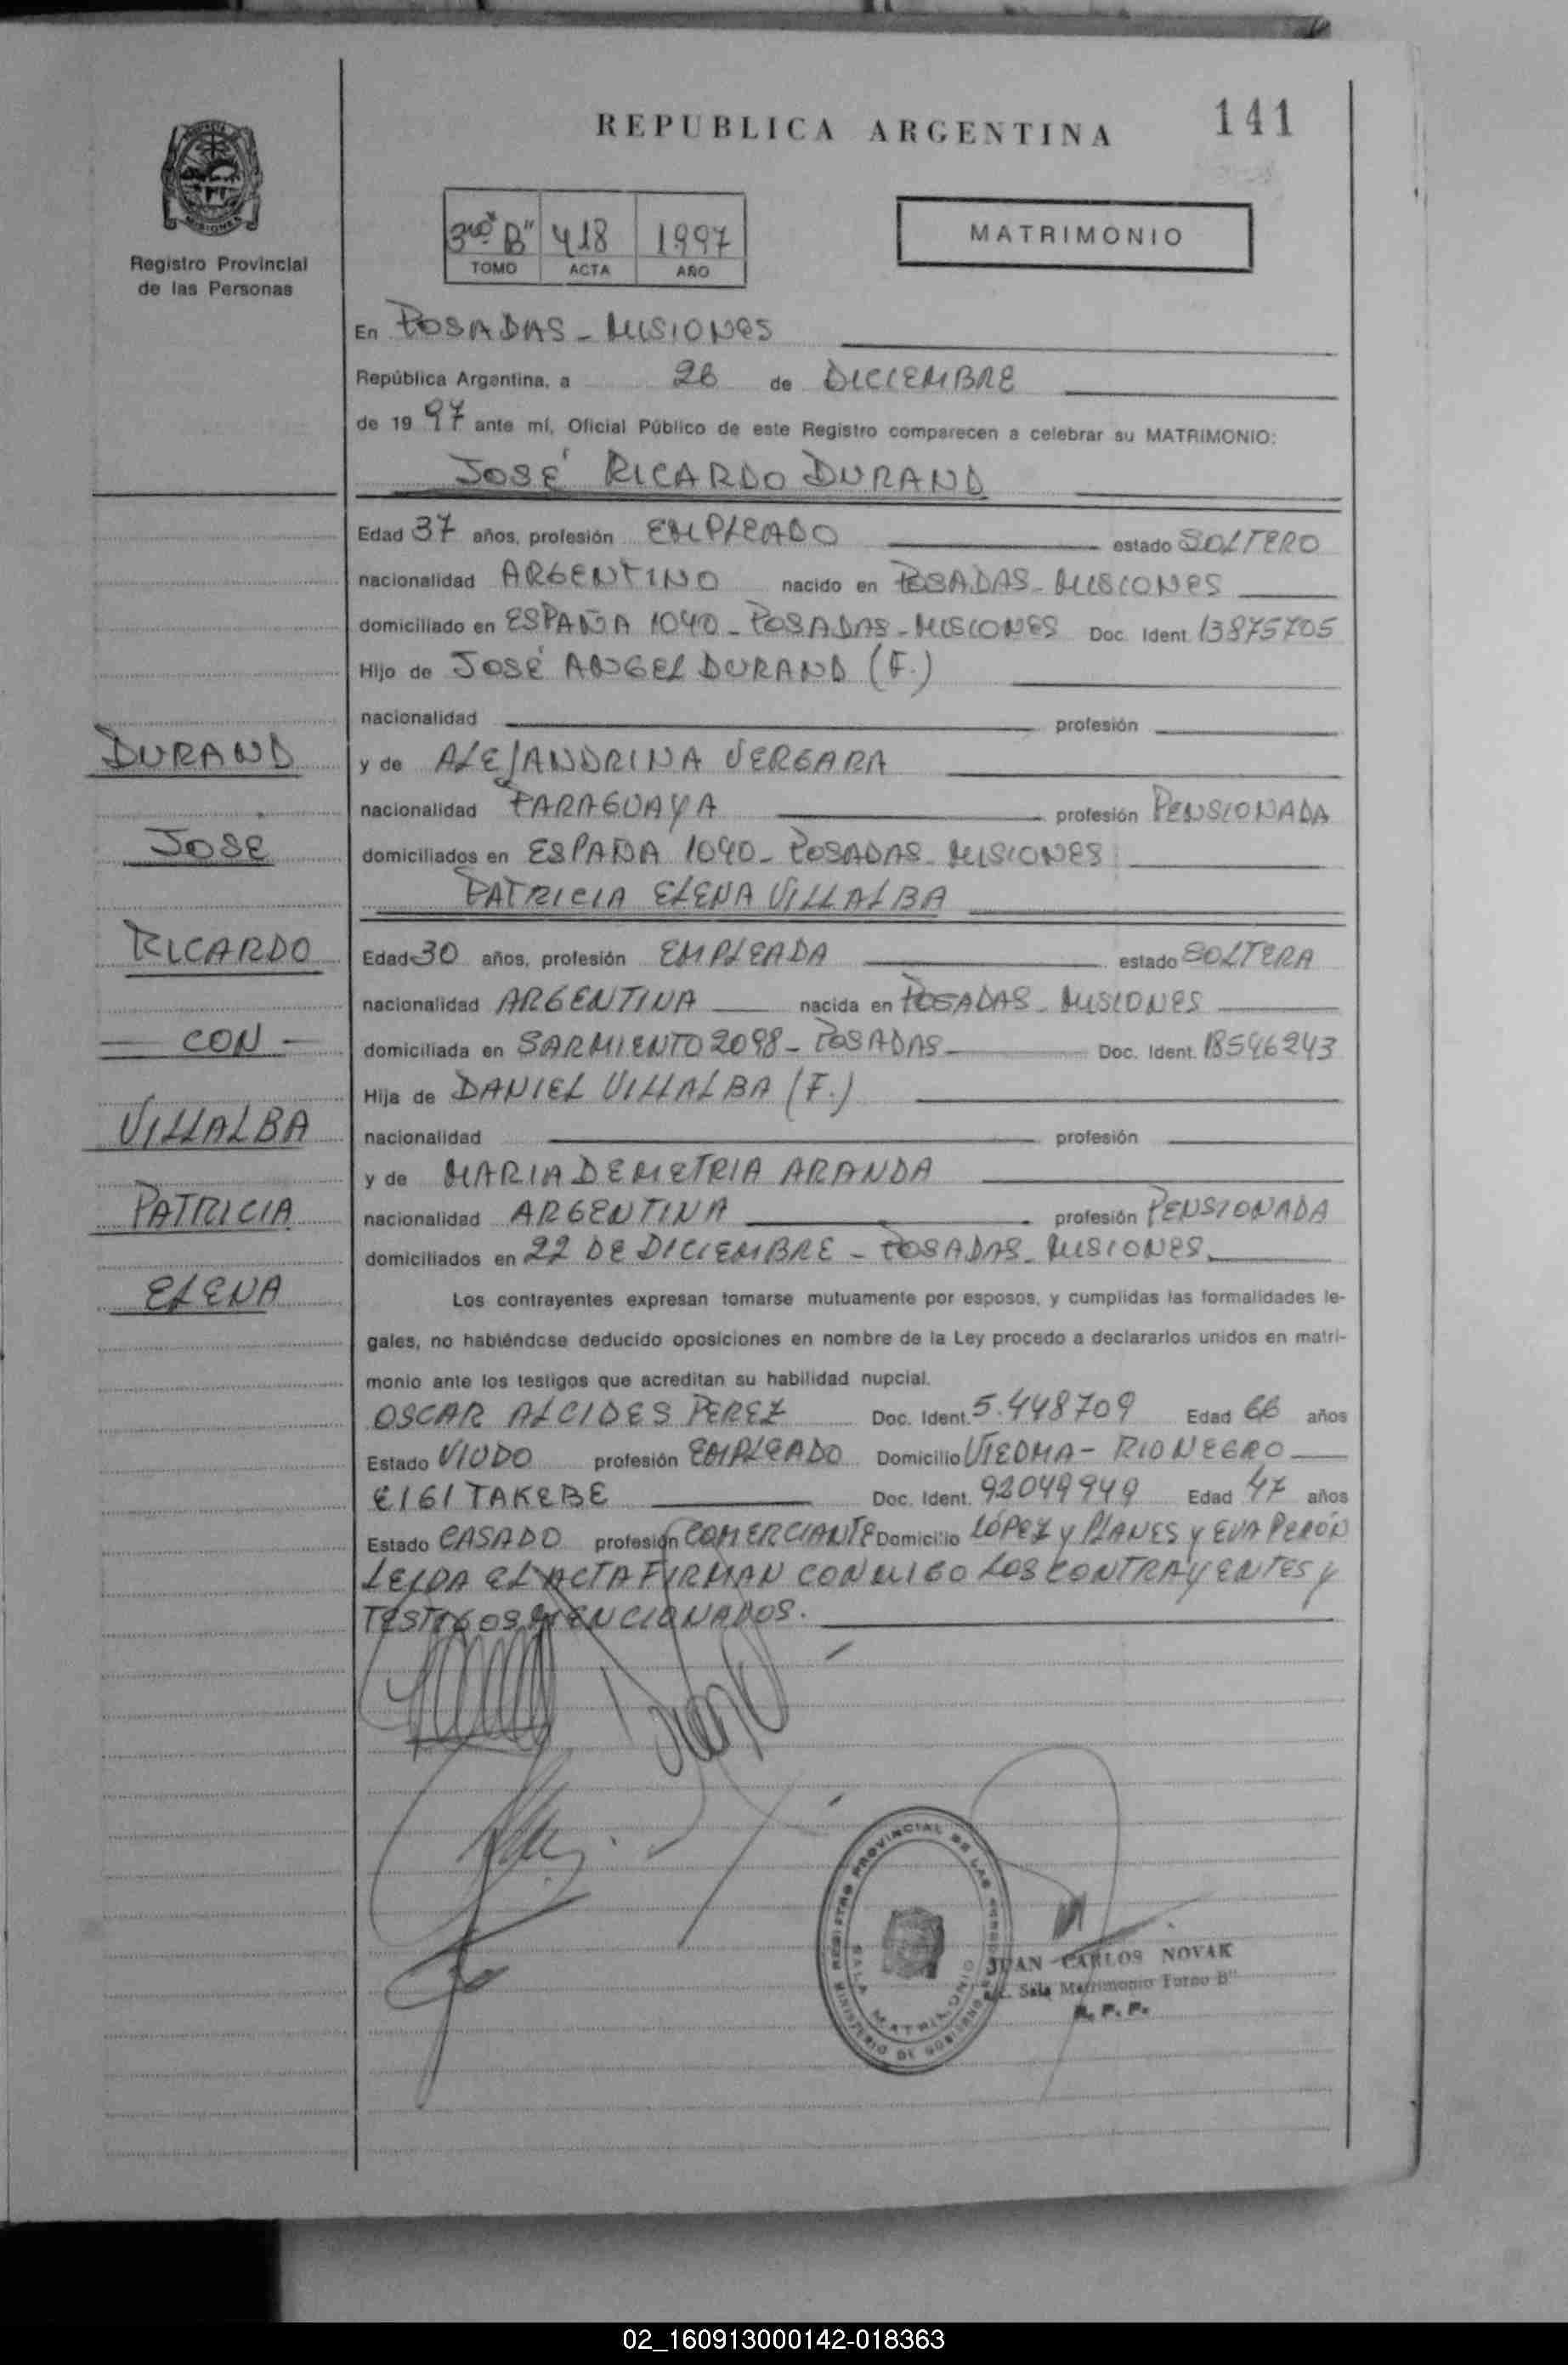 REPUBLICA ARGENTINA
141
MISIONES
Registro Provincial
de las Personas
3ro "B" 418 1997
TOMO ACTA AÑO
MATRIMONIO
En POSADAS - MISIONES
República Argentina, a 26 de DICIEMBRE
de 19 97 ante mí, Oficial Público de este Registro comparecen a celebrar su MATRIMONIO:
JOSÉ RICARDO DURAND
Edad 37 años, profesión EMPLEADO estado SOLTERO
nacionalidad ARGENTINO nacido en POSADAS - MISIONES
domiciliado en ESPAÑA 1040 - POSADAS - MISIONES Doc. Ident. 13875705
Hijo de JOSÉ ANGEL DURAND (F.)
nacionalidad profesión
y de ALEJANDRINA VERGARA
nacionalidad PARAGUAYA profesión PENSIONADA
domiciliados en ESPAÑA 1040 - POSADAS - MISIONES
PATRICIA ELENA VILLALBA
Edad 30 años, profesión EMPLEADA estado SOLTERA
nacionalidad ARGENTINA nacida en POSADAS - MISIONES
domiciliada en SARMIENTO 2098 - POSADAS Doc. Ident. 18546243
Hija de DANIEL VILLALBA (F.)
nacionalidad profesión
y de MARIA DEMETRIA ARANDA
nacionalidad ARGENTINA profesión PENSIONADA
domiciliados en 22 DE DICIEMBRE - POSADAS - MISIONES.
Los contrayentes expresan tomarse mutuamente por esposos, y cumplidas las formalidades le-
gales, no habiéndose deducido oposiciones en nombre de la Ley procedo a declararlos unidos en matri-
monio ante los testigos que acreditan su habilidad nupcial.
OSCAR ALCIDES PEREZ Doc. Ident. 5.448709 Edad 66 años
Estado VIUDO profesión EMPLEADO Domicilio VIEDMA - RIO NEGRO
EIGI TAKEBE Doc. Ident. 92049949 Edad 47 años
Estado CASADO profesión COMERCIANTE Domicilio LÓPEZ y PLANES y EVA PERÓN
LEIDA EL ACTA FIRMAN CONMIGO LOS CONTRAYENTES y
TESTIGOS MENCIONADOS.
DURAND
JOSE
RICARDO
- CON -
VILLALBA
PATRICIA
ELENA
REGISTRO PROVINCIAL DE LAS PERSONAS
SALA MATRIMONIO
MINISTERIO DE GOBIERNO
JUAN CARLOS NOVAK
Sala Matrimonio Turno B"
R. P. P.
02_160913000142-018363